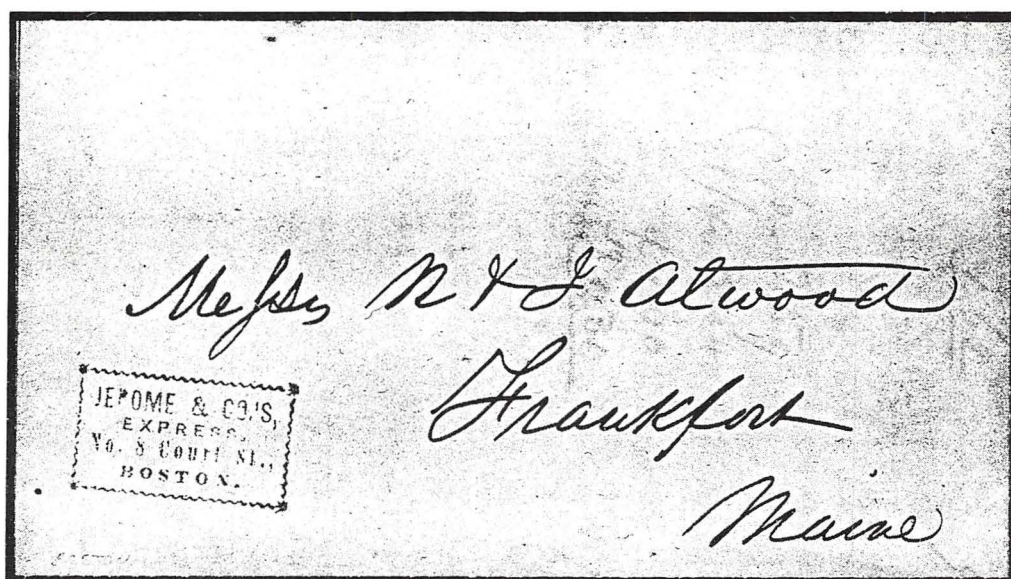 Messrs N & J Atwood
Frankfort
Maine
JEROME & CO.'S,
EXPRESS,
No. 8 Court St.,
BOSTON.